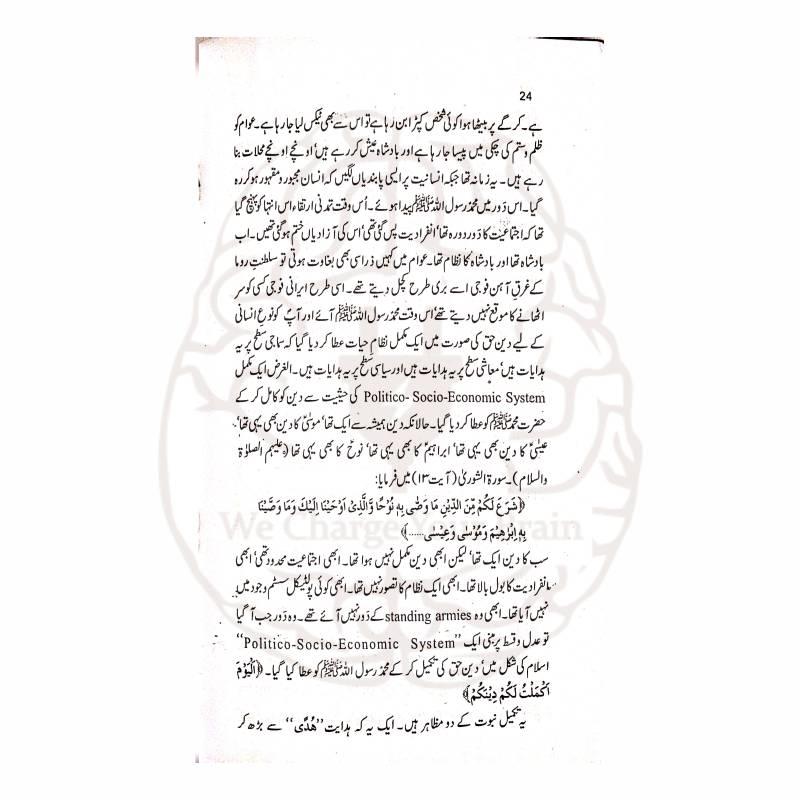 24
ہے۔ کرگے پر بیٹھا ہوا کوئی شخص کپڑا بن رہا ہے تو اس سے بھی ٹیکس لیا جا رہا ہے۔ عوام کو
ظلم و ستم کی چکی میں پیسا جا رہا ہے اور بادشاہ عیش کر رہے ہیں‘ اونچے اونچے محلات بنا
رہے ہیں۔ یہ زمانہ تھا جبکہ انسانیت پر ایسی پابندیاں لگیں کہ انسان مجبور و مقہور ہو کر رہ
گیا۔ اس دَور میں محمد رسول اللہ ﷺ پیدا ہوئے۔ اُس وقت تمدنی ارتقاء اس انتہا کو پہنچ گیا
تھا کہ اجتماعیت کا دَور دورہ تھا‘ انفرادیت پس گئی تھی‘ اس کی آزادیاں ختم ہو گئی تھیں۔ اب
بادشاہ تھا اور بادشاہ کا نظام تھا۔ عوام میں کہیں ذرا سی بھی بغاوت ہوتی تو سلطنتِ روما
کے غرقِ آہن فوجی اسے بری طرح کچل دیتے تھے۔ اسی طرح ایرانی فوجی کسی کو سر
اٹھانے کا موقع نہیں دیتے تھے‘ اس وقت محمد رسول اللہ ﷺ آئے اور آپؐ کو نوعِ انسانی
کے لیے دین حق کی صورت میں ایک مکمل نظامِ حیات عطا کر دیا گیا کہ سماجی سطح پر یہ
ہدایات ہیں‘ معاشی سطح پر یہ ہدایات ہیں اور سیاسی سطح پر یہ ہدایات ہیں۔ الغرض ایک مکمل
Politico- Socio-Economic System کی حیثیت سے دین کو کامل کر کے
حضرت محمد ﷺ کو عطا کر دیا گیا۔ حالانکہ دین ہمیشہ سے ایک تھا‘ موسٰیؑ کا دین بھی یہی تھا‘
عیسٰیؑ کا دین بھی یہی تھا‘ ابراہیمؑ کا بھی یہی تھا‘ نوحؑ کا بھی یہی تھا (علیہم الصلوٰۃ
والسلام)۔ سورۃ الشوریٰ (آیت ۱۳) میں فرمایا:
﴿شَرَعَ لَكُمْ مِّنَ الدِّيْنِ مَا وَصّٰى بِهٖ نُوْحًا وَّالَّذِىْ اَوْحَيْنَا اِلَيْكَ وَمَا وَصَّيْنَا
بِهٖ اِبْرٰهِيْمَ وَمُوْسٰى وَعِيْسٰى......﴾
سب کا دین ایک تھا‘ لیکن ابھی دین مکمل نہیں ہوا تھا۔ ابھی اجتماعیت محدود تھی‘ ابھی
انفرادیت کا بول بالا تھا۔ ابھی ایک نظام کا تصور نہیں تھا۔ ابھی کوئی پولیٹیکل سسٹم وجود میں
نہیں آیا تھا۔ ابھی وہ standing armies کے دَور نہیں آئے تھے۔ وہ دَور جب آ گیا
تو عدل و قسط پر مبنی ایک ‘‘Politico-Socio-Economic System’’
اسلام کی شکل میں‘ دین حق کی تکمیل کر کے محمد رسول اللہ ﷺ کو عطا کیا گیا۔ ﴿اَلْيَوْمَ
اَكْمَلْتُ لَكُمْ دِيْنَكُمْ﴾
یہ تکمیل نبوت کے دو مظاہر ہیں۔ ایک یہ کہ ہدایت ‘‘هُدًى’’ سے بڑھ کر